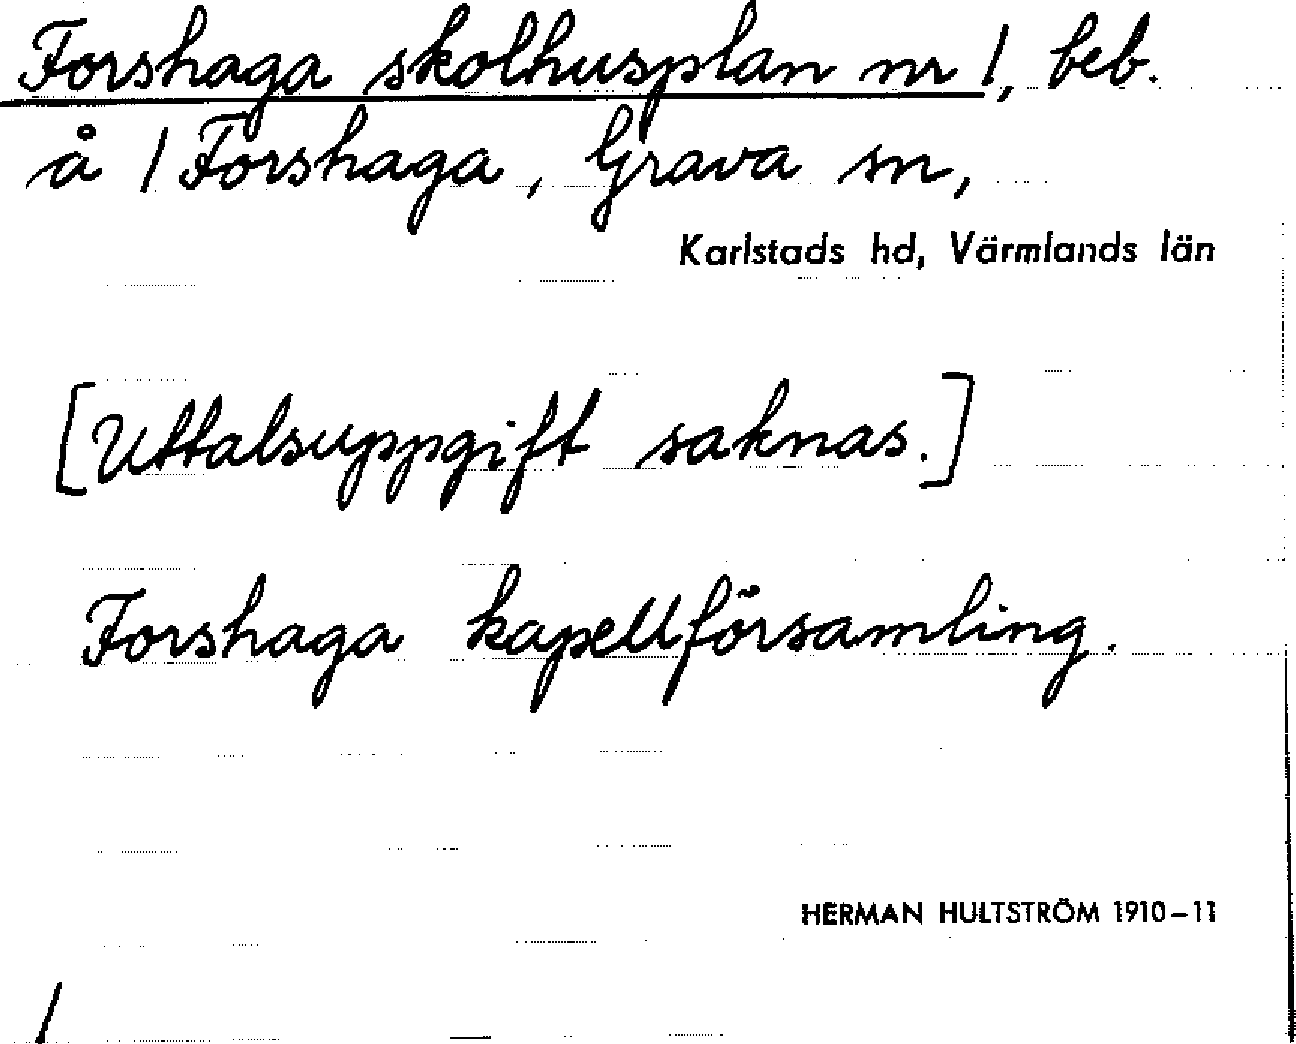 Forshaga skolhusplan nr 1, beb.
å 1 Forshaga, Grava sn,
Karlstads hd, Värmlands län
[Uttalsuppgift saknas.]
Forshaga kapellförsamling.
HERMAN HULTSTRÖM 1910-11
/